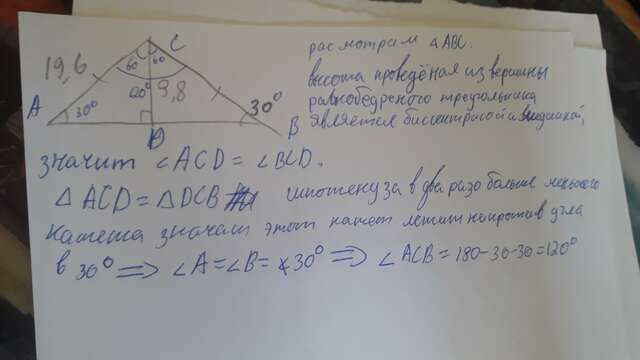 C
60 60
19,6
120° 9,8
A 30° 30°
D
B
расмотрим △ABC.
высота проведёная из вершины
равнобедреного треугольника
является биссектрисой и медианой,
значит ∠ACD = ∠BCD.
△ ACD = △DCB гипотенуза в два разо больше меньшего
катета значит этот катет лежит напротив угла
в 30° ⟹ ∠A=∠B= 30° ⟹ ∠ ACB = 180-30-30=120°